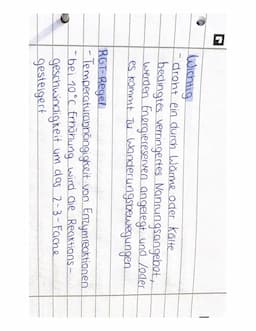 Wichtig
- droht ein durch Wärme oder Kälte
bedingtes verringertes Nahrungsangebot,
werden Energiereserven angelegt und/oder
es kommt zu Wanderungsbewegungen
RGT-Regel
- Temperaturabhängigkeit von Enzymreaktionen
- bei 10°C Erhöhung wird die Reaktions-
geschwindigkeit um das 2-3-Fache
gesteigert